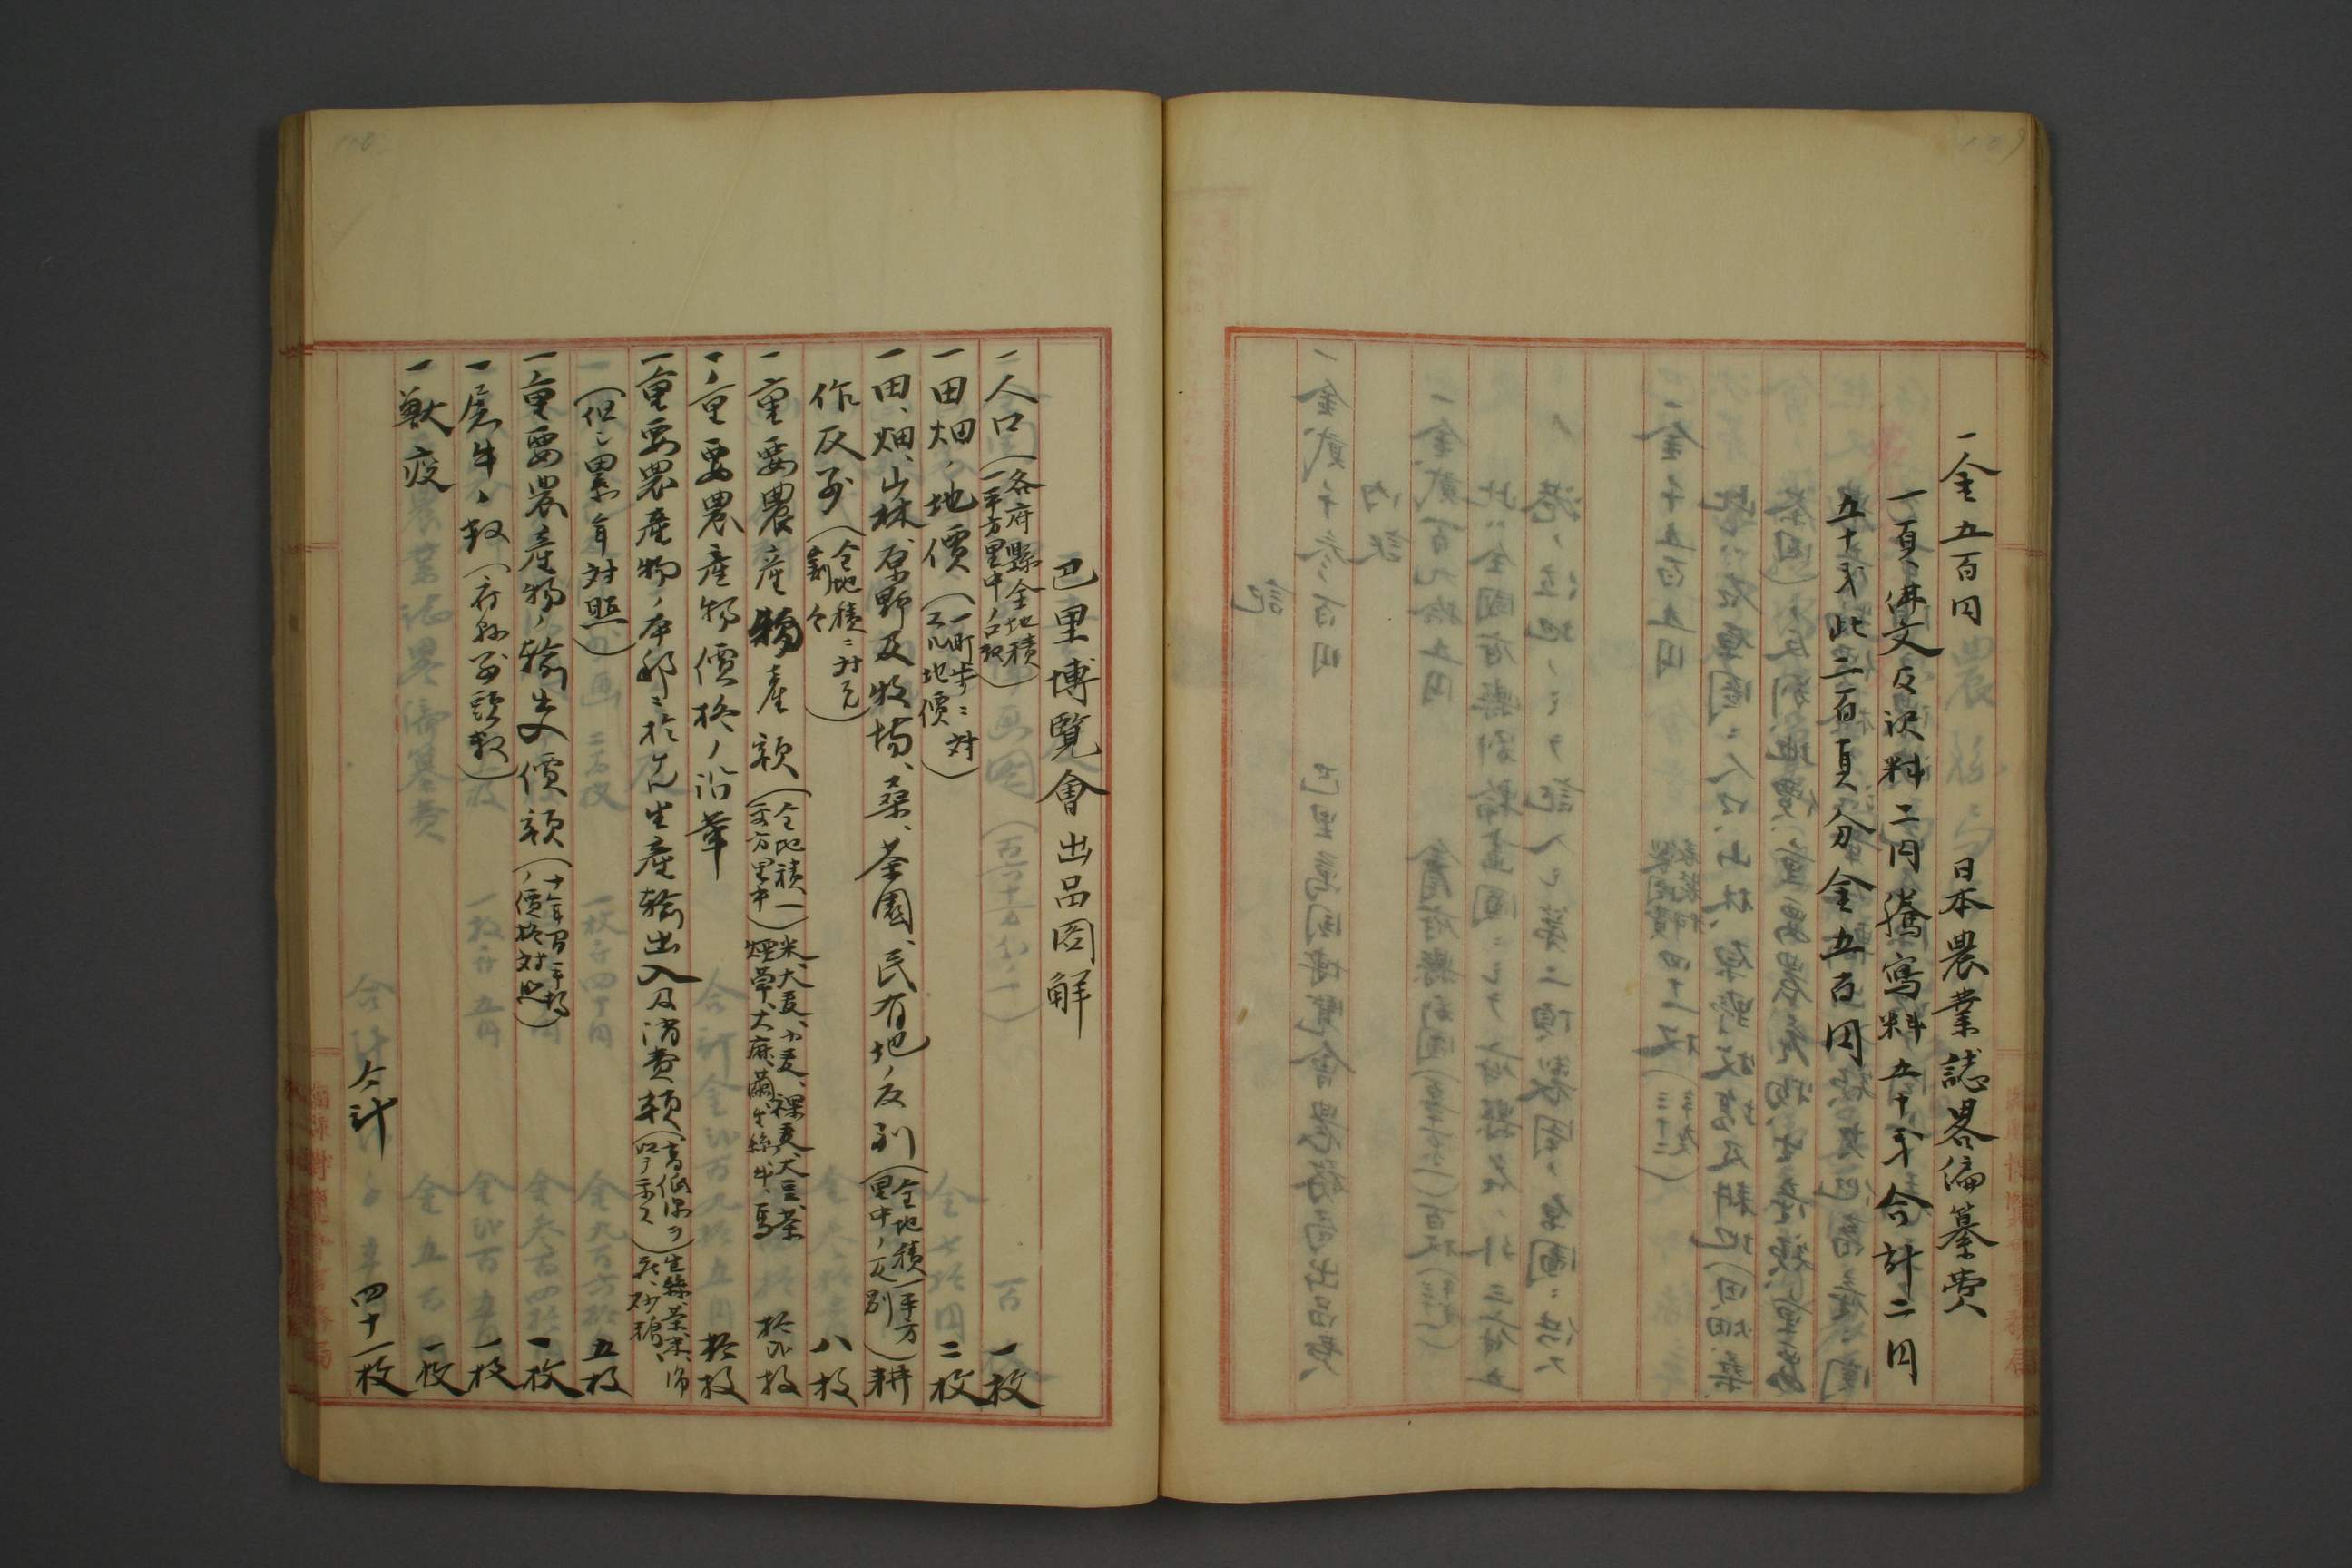 一金五百円　日本農業誌畧編纂費
一頁佛文反訳料二円謄寫料五十戔合計二円
五十戔此二百頁分金五百円
巴里博覧會出品図解
一人口（各府縣全地積一平方里中ノ口数）　一枚
一田畑ノ地價（一町歩ニ対スル地價）　二枚
一田、畑、山林、原野及牧場、桑、茶園、民有地ノ反別（全地積一平方里中ノ反別）耕
作反別（全地積ニ対スル割合）　八枚
一重要農産物産額（全地積一平方里中）米、大麦、小麦、裸麦、大豆、茶、煙草、大麻、繭、生絲、牛、馬　拾弐枚
一重要農産物價格ノ沿革　拾枚
一重要農産物ノ本邦ニ於ケル生産輸出入及消費額（高低線ヲ以テ示ス）生絲、茶、米、綿花、砂糖
（但シ累年対照）　五枚
一重要農産物ノ輸出入價額（十ケ年間平均ノ價格対照）　一枚
一屠牛ノ数（府縣別頭数）　一枚
一獣疫　一枚
合計　四十一枚